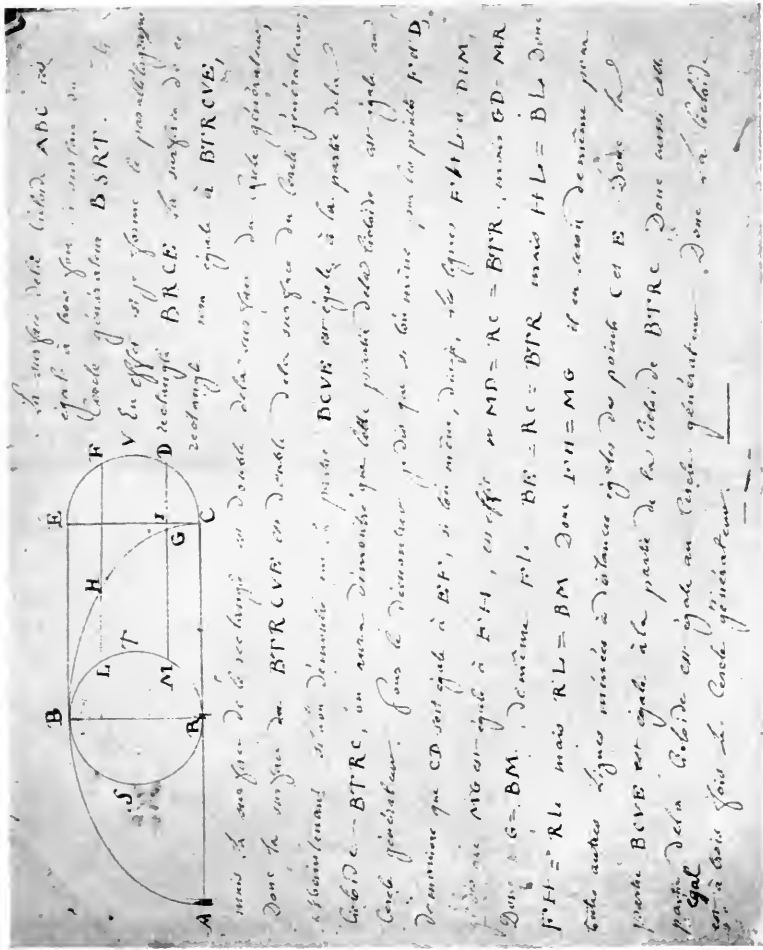 La surface de la Cicloïde ABC est
égale à trois fois la surface du
Cercle générateur BSRT.
En effet si je forme le parallélogramme
rectangle BRCE la surface de ce
rectangle sera égale à BTRCVE,
mais la surface de le rectangle est double de la surface du Cercle générateur,
Donc la surface du BTRCVE est double de la surface du Cercle générateur;
Maintenant si on démontre que la partie BCVE est égale à la partie de la
Cicloïde BTRC, on aura démontré que cette partie de la Cicloïde est égale au
Cercle générateur. Pour le démontrer je dis que si l'on mène, par les points F et D,
de manière que CD soit égale à EF, si l'on mène, dis-je, les lignes FHL et DIM,
je dis que MG est égale à FH, en effet MD = RC = BTR, mais GD = MR
Donc MG = BM. de même FL = BE = RC = BTR mais HL = BL Donc
FH = RL mais RL = BM Donc FH = MG il en serait de même pour
toutes autres lignes menées à distances égales des points C et E Donc la
partie BCVE est égale à la partie de la Cicloïde BTRC Donc aussi cette
partie de la Cicloïde est égale au Cercle générateur. Donc la Cicloïde
égal
est à trois fois le Cercle générateur.
E
F
V
D
I
G
C
H
B
L
T
M
R
S
A